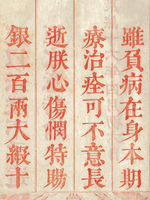 雖負病在身本期
療治痊可不意長
逝朕心傷憫特賜
銀二百兩大緞十